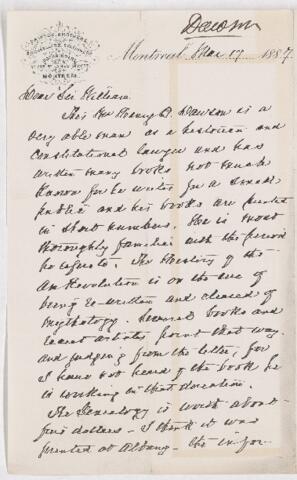 Dawson
DAWSON BROTHERS
MONTREAL
Montreal Mar 17 1887
Dear Sir William.
This Mr Henry B. Dawson is a
very able man as a historian and
constitutional lawyer and has
written many books not much
known for he writes for a small
public and his books are printed
in short numbers. He is most
thoroughly familiar with the period
he
The History of the
Am Revolution is on the eve of
being re-written and cleared of
mythology. Several books and
recent articles point that way
and judging from the letter, for
I have not heard of the book he
is working in that direction.
The Genealogy is worth about
five dollars - I think it was
printed at Albany - the infor-